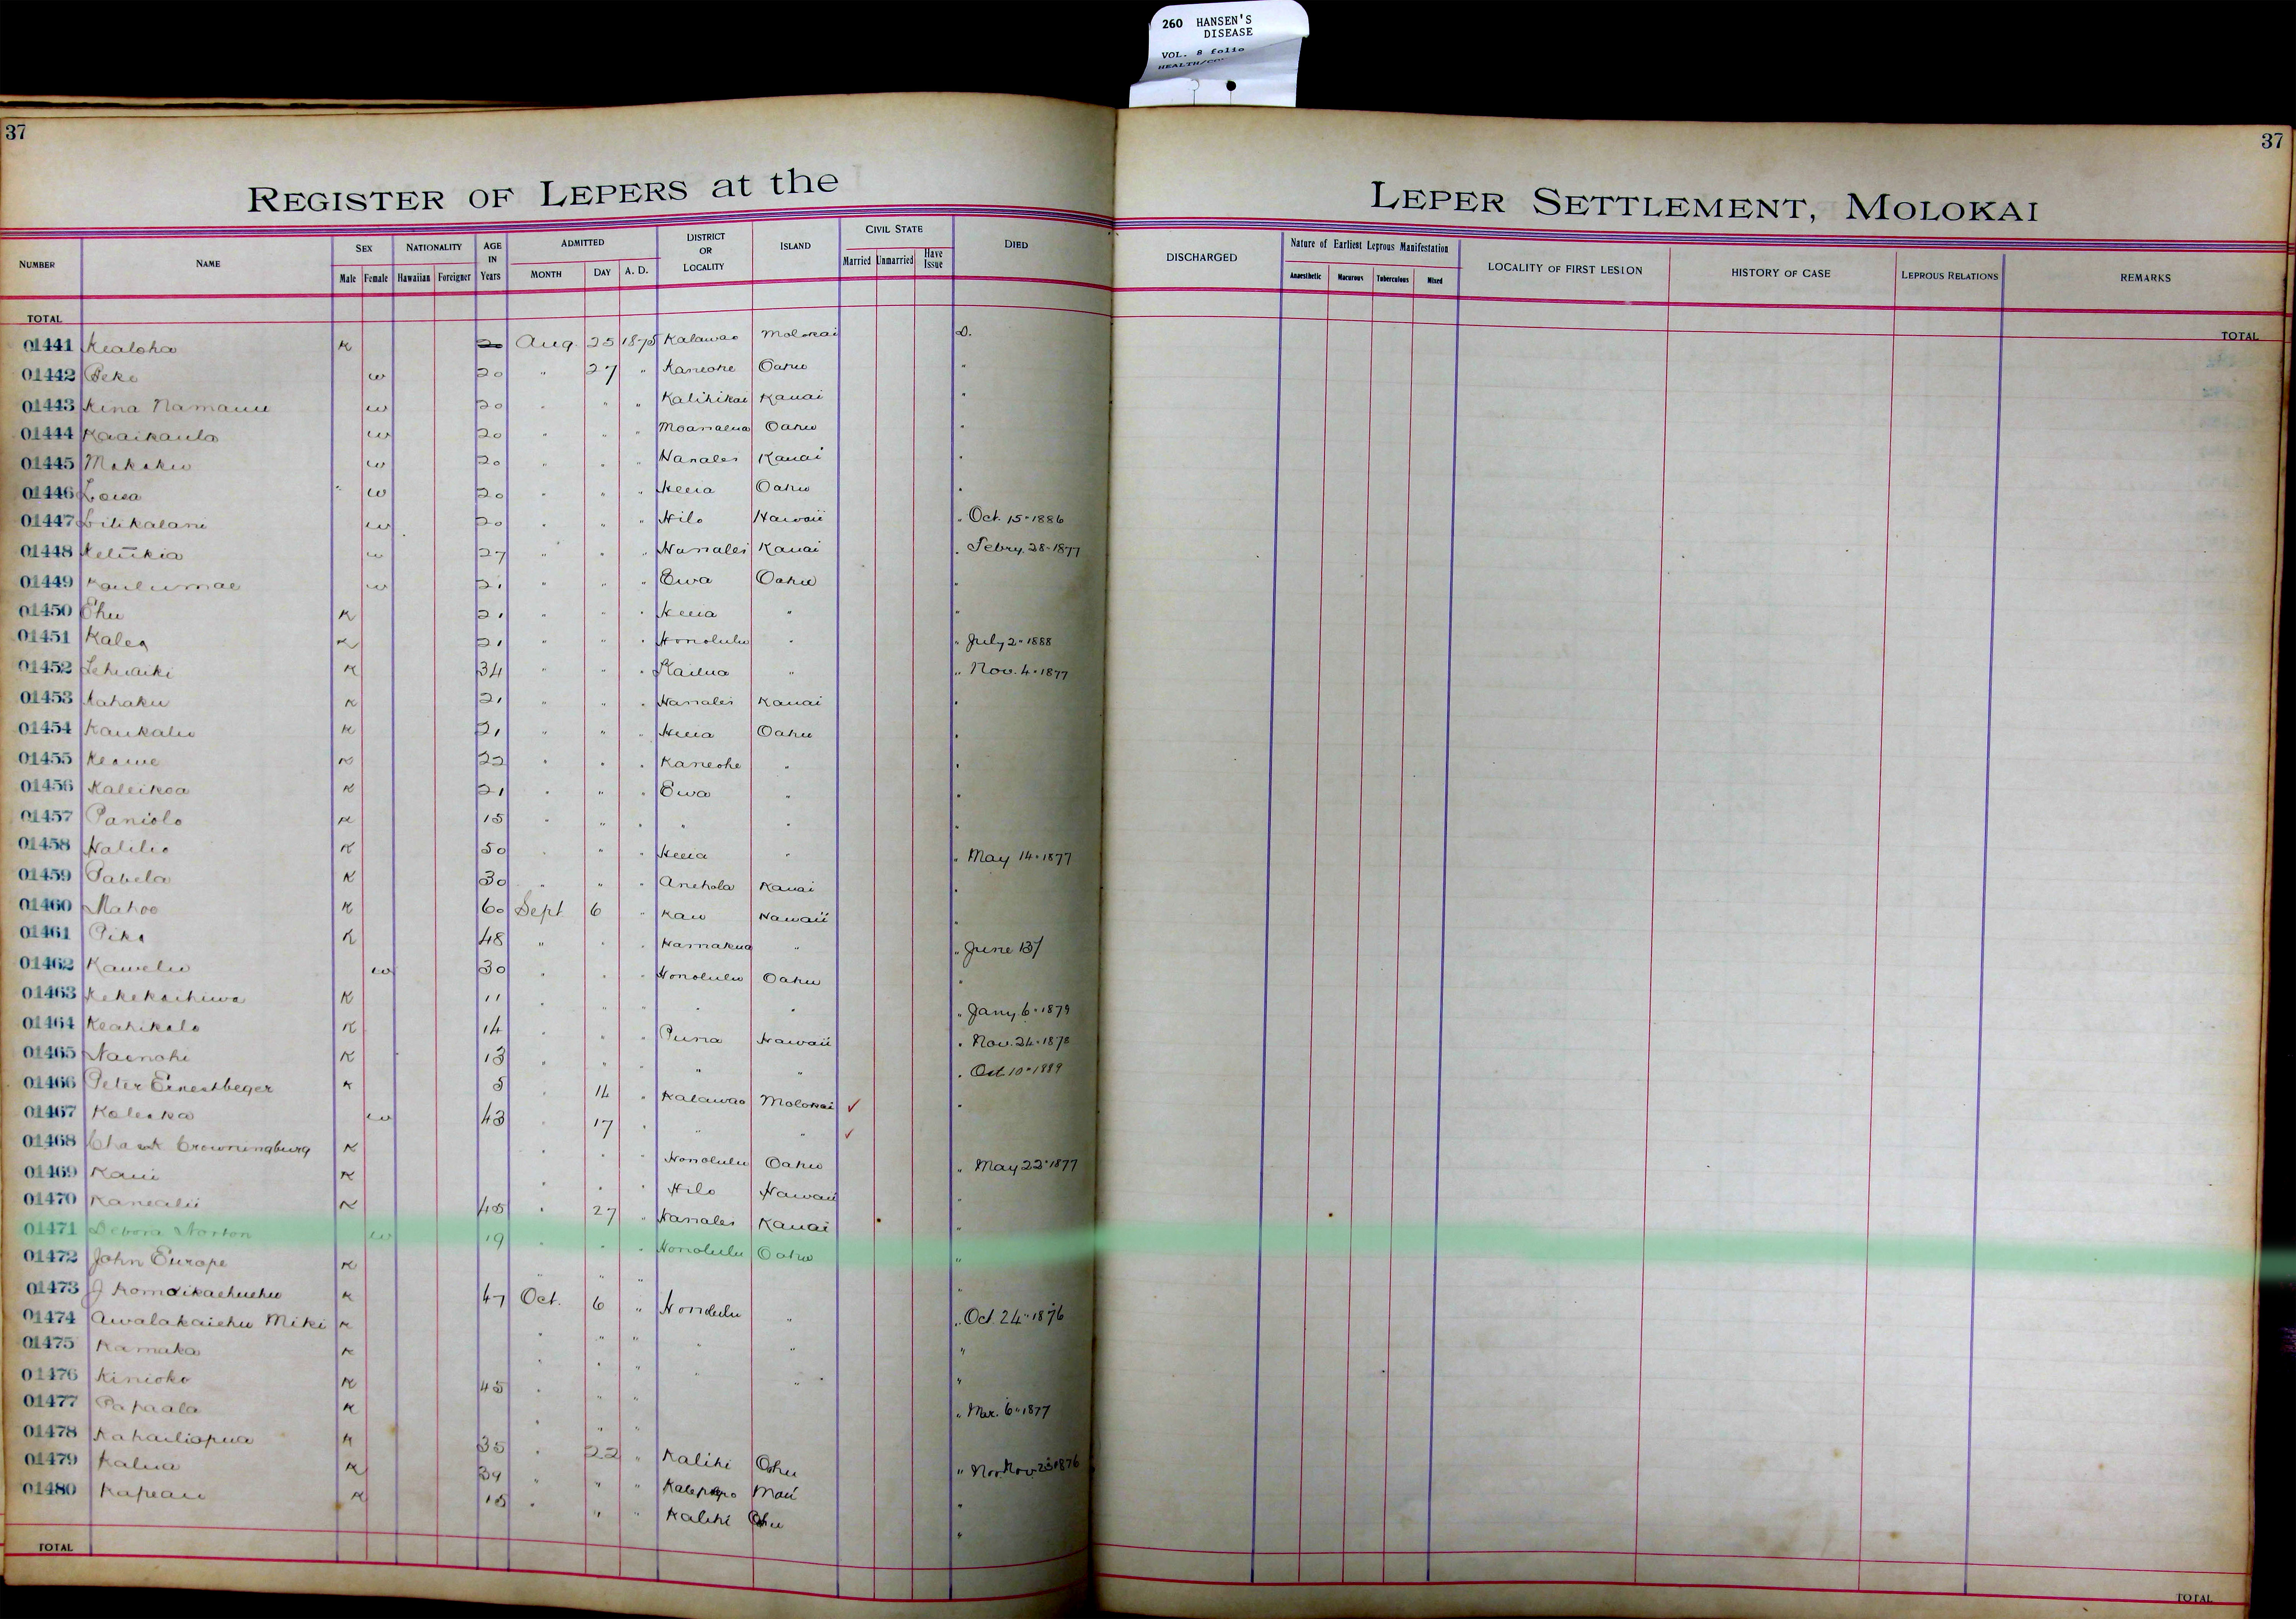 260 HANSEN'S
DISEASE
VOL. 8 folio
37
37
REGISTER OF LEPERS at the LEPER SETTLEMENT, MOLOKAI
NUMBER NAME SEX NATIONALITY AGE IN Years ADMITTED DISTRICT OR LOCALITY ISLAND CIVIL STATE DIED DISCHARGED Nature of Earliest Leprous Manifestation LOCALITY OF FIRST LESION HISTORY OF CASE LEPROUS RELATIONS REMARKS
Male Female Hawaiian Foreigner MONTH DAY A. D. Married Unmarried Have Issue Anaesthetic Macurous Tuberculous Mixed
TOTAL TOTAL
01441 Kealoha K 20 Aug. 25 1875 Kalawao Molokai D.
01442 Peke w 20 " 27 " Kaneohe Oahu "
01443 Kina Namauu w 20 " " " Kalihikai Kauai "
01444 Kaaikaula w 20 " " " Moanalua Oahu "
01445 w 20 " " " Hanalei Kauai "
01446 Loisa w 20 " " " Heeia Oahu "
01447 Lilikalani w 20 " " " Hilo Hawaii " Oct. 15 1886
01448 Keliikia w 27 " " " Hanalei Kauai " Febry. 28 1877
01449 Kaulumae w 21 " " " Ewa Oahu "
01450 Ehu K 21 " " " Heeia " "
01451 Kalea K 21 " " " Honolulu " " July 2 1888
01452 Lehuaiki K 34 " " " Kailua " " Nov. 4 1877
01453 Kahaku K 21 " " " Hanalei Kauai "
01454 Kaukaliu K 21 " " " Heeia Oahu "
01455 Keawe K 22 " " " Kaneohe " "
01456 Kaleikoa K 21 " " " Ewa " "
01457 Paniolo K 15 " " " " " "
01458 Halilio K 50 " " " Heeia " " May 14 1877
01459 Pabela K 30 " " " Anehola Kauai "
01460 Mahoe K 60 Sept 6 " Kau Hawaii "
01461 Pika K 48 " " " Hamakua " " June 13/
01462 Kawelu w 30 " " " Honolulu Oahu "
01463 Kekekachiwa K 11 " " " " " " Jany 6 1879
01464 Keahikalo K 14 " " " Puna Hawaii " Nov. 24 1878
01465 Nainohi K 13 " " " " " " Oct 10 1889
01466 Peter Ernestbeger K 5 " 14 " Kalawao Molokai ✓ "
01467 Kaleoka w 43 " 17 " " " ✓
01468 Crowningburg K " " " Honolulu Oahu " May 22 1877
01469 Kaui K " " " Hilo Hawaii "
01470 Kanealii K 45 " 27 " Hanalei Kauai "
01471 Debora Norton w 19 " " " Honolulu Oahu "
01472 John Europe K " " " "
01473 J K 47 Oct. 6 " Honolulu " " Oct. 24 1876
01474 Awalakaiehu Miki K " " " " " "
01475 Kamaka K " " " " " "
01476 Kinioko K 45 " " " " Mar. 6 1877
01477 Papaala K " " "
01478 Kahailiopua K 35 " 22 " Kalihi Oahu " Nov. 23 1876
01479 Kalua K 39 " " " Kalepopo Maui "
01480 Kapeau K 15 " " " Kalihi Oahu "
TOTAL TOTAL